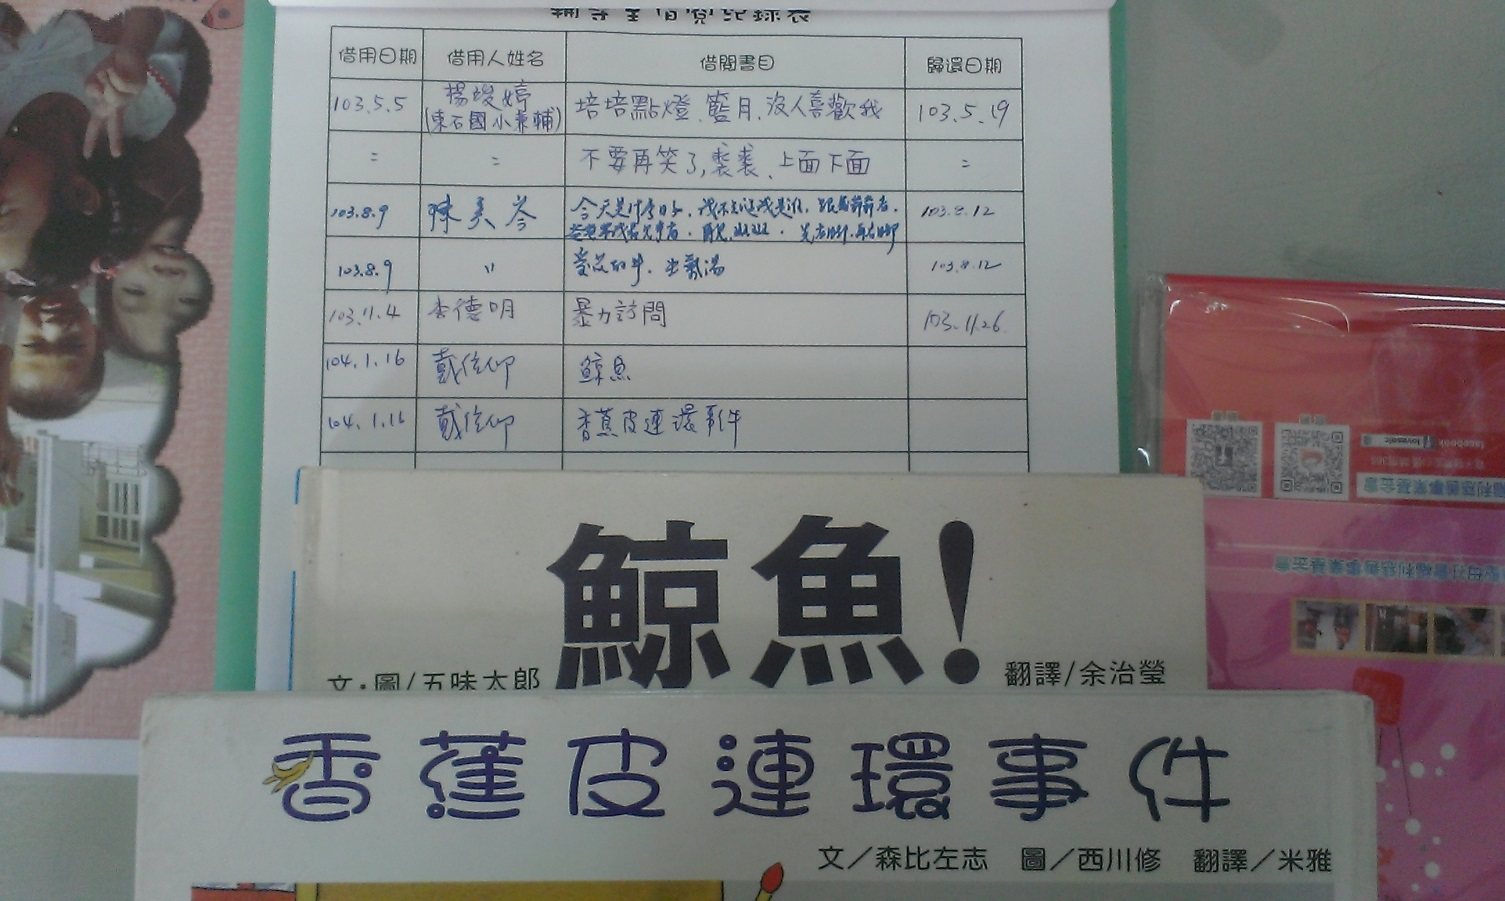 借用日期 借用人姓名 借閱書目 歸還日期
103.5.5 楊竣婷 培培點燈、藍月、沒人喜歡我 103.5.19
(東石國小兼輔)
= = 不要再笑了,裘裘、上面下面 =
103.8.9 陳美岑 今天是什麼日子、我不知道我是誰、 103.8.12
103.8.9 " 愛花的牛、生氣湯 103.8.12
103.11.4 李德明 暴力訪問 103.11.26.
104.1.16 戴信仰 鯨魚
104.1.16 戴信仰 香蕉皮連環事件
鯨魚!
文・圖/五味太郎 翻譯/余治瑩
香蕉皮連環事件
文／森比左志 圖／西川修 翻譯／米雅